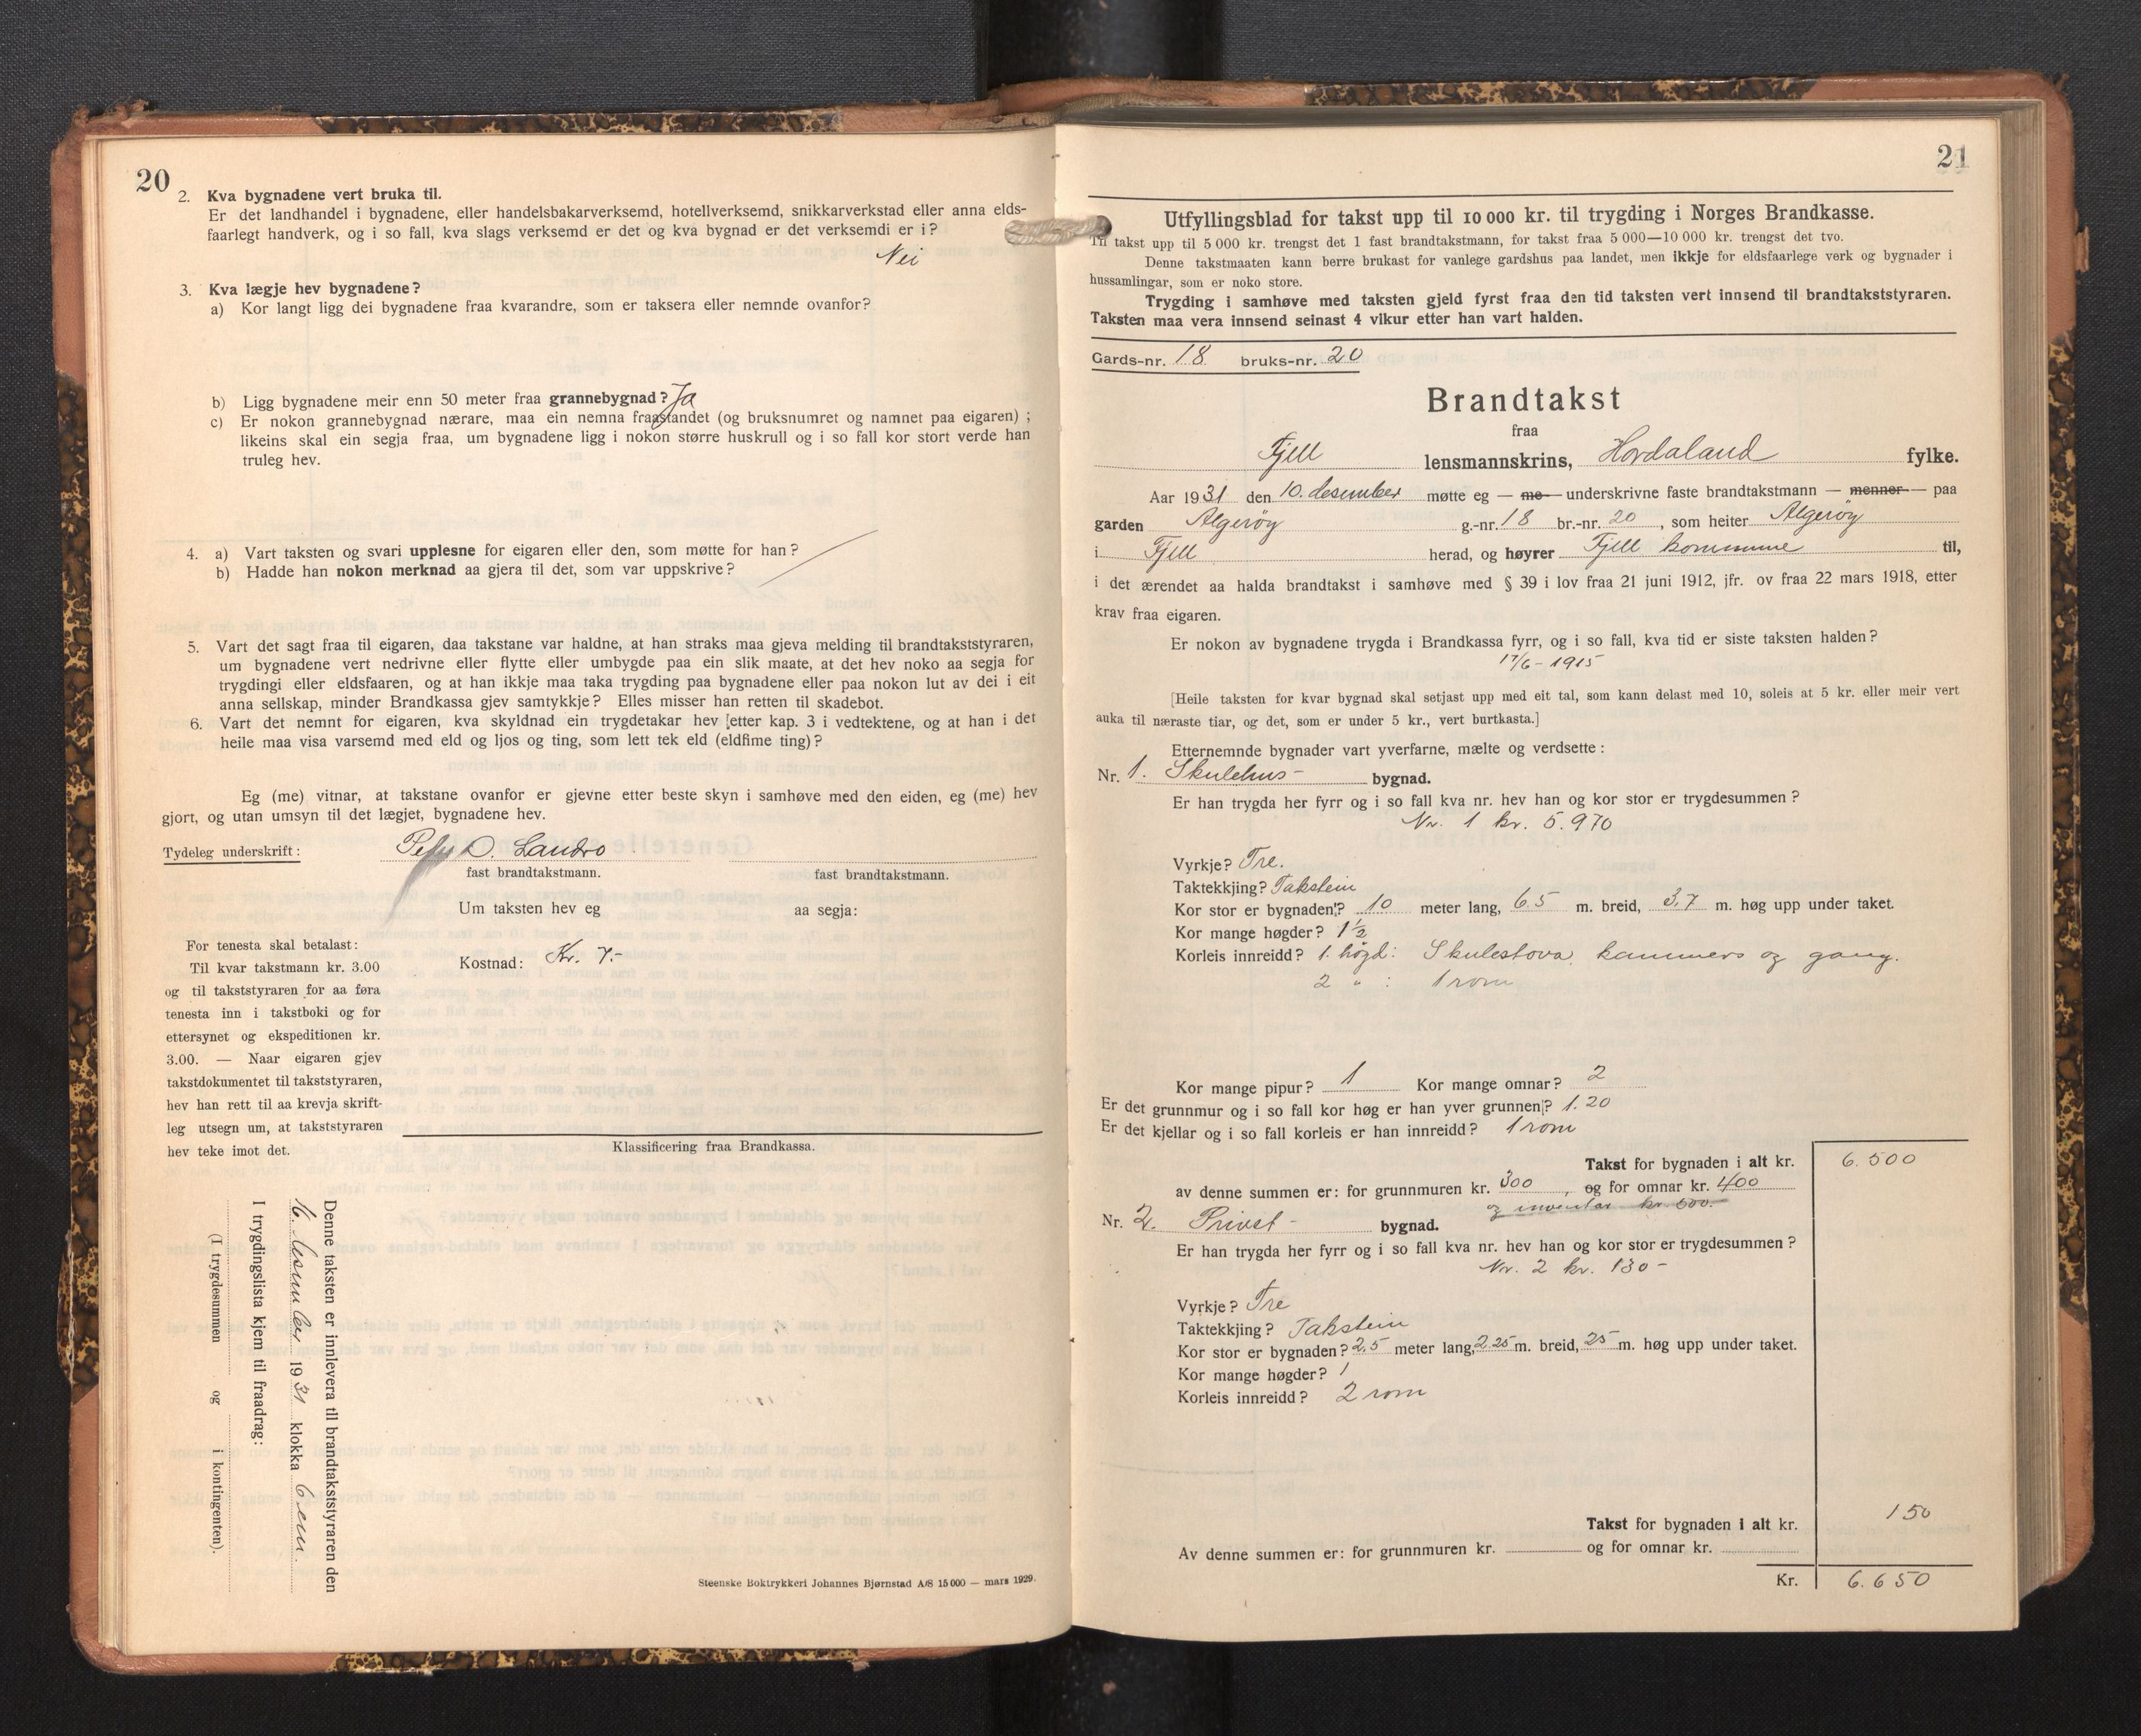 20
2. Kva bygnadene vert bruka til.
Er det landhandel i bygnadene, eller handelsbakarverksemd, hotellverksemd, snikkarverkstad eller anna elds-
faarlegt handverk, og i so fall, kva slags verksemd er det og kva bygnad er det verksemdi er i?
Nei
3. Kva lægje hev bygnadene?
a) Kor langt ligg dei bygnadene fraa kvarandre, som er taksera eller nemnde ovanfor?
b) Ligg bygnadene meir enn 50 meter fraa grannebygnad? Ja
c) Er nokon grannebygnad nærare, maa ein nemna fraastandet (og bruksnumret og namnet paa eigaren) ;
likeins skal ein segja fraa, um bygnadene ligg i nokon større huskrull og i so fall kor stort verde han
truleg hev.
4. a) Vart taksten og svari upplesne for eigaren eller den, som møtte for han?
b) Hadde han nokon merknad aa gjera til det, som var uppskrive?
5. Vart det sagt fraa til eigaren, daa takstane var haldne, at han straks maa gjeva melding til brandtakststyraren,
um bygnadene vert nedrivne eller flytte eller umbygde paa ein slik maate, at det hev noko aa segja for
trygdingi eller eldsfaaren, og at han ikkje maa taka trygding paa bygnadene eller paa nokon lut av dei i eit
anna sellskap, minder Brandkassa gjev samtykkje? Elles misser han retten til skadebot.
6. Vart det nemnt for eigaren, kva skyldnad ein trygdetakar hev [etter kap. 3 i vedtektene, og at han i det
heile maa visa varsemd med eld og ljos og ting, som lett tek eld (eldfime ting)?
Eg (me) vitnar, at takstane ovanfor er gjevne etter beste skyn i samhøve med den eiden, eg (me) hev
gjort, og utan umsyn til det lægjet, bygnadene hev.
Tydeleg underskrift: Peter D. Landro
fast brandtakstmann. fast brandtakstmann.
Um taksten hev eg aa segja:
For tenesta skal betalast:
Til kvar takstmann kr. 3.00
og til takststyraren for aa føra
tenesta inn i takstboki og for
ettersynet og ekspeditionen kr.
3.00. — Naar eigaren gjev
takstdokumentet til takststyraren,
hev han rett til aa krevja skrift-
leg utsegn um, at takststyraren
hev teke imot det.
Kostnad: Kr. 7.-
Klassificering fraa Brandkassa.
Denne taksten er innlevera til brandtakststyraren den
16. desember 1931 klokka 6 em.
I trygdingslista kjem til fraadrag:
(I trygdesummen og i kontingenten).
Steenske Boktrykkeri Johannes Bjørnstad A/S 15 000 — mars 1929.
21
Utfyllingsblad for takst upp til 10 000 kr. til trygding i Norges Brandkasse.
Til takst upp til 5 000 kr. trengst det 1 fast brandtakstmann, for takst fraa 5 000—10 000 kr. trengst det tvo.
Denne takstmaaten kann berre brukast for vanlege gardshus paa landet, men ikkje for eldsfaarlege verk og bygnader i
hussamlingar, som er noko store.
Trygding i samhøve med taksten gjeld fyrst fraa den tid taksten vert innsend til brandtakststyraren.
Taksten maa vera innsend seinast 4 vikur etter han vart halden.
Gards-nr. 18 bruks-nr. 20
Brandtakst
fraa
Fjell lensmannskrins, Hordaland fylke.
Aar 1931 den 10. desember møtte eg — me — underskrivne faste brandtakstmann — menner — paa
garden Algerøy g.-nr. 18 br.-nr. 20, som heiter Algerøy
i Fjell herad, og høyrer Fjell kommune til,
i det ærendet aa halda brandtakst i samhøve med § 39 i lov fraa 21 juni 1912, jfr. ov fraa 22 mars 1918, etter
krav fraa eigaren.
Er nokon av bygnadene trygda i Brandkassa fyrr, og i so fall, kva tid er siste taksten halden?
17/6 - 1915
[Heile taksten for kvar bygnad skal setjast upp med eit tal, som kann delast med 10, soleis at 5 kr. eller meir vert
auka til næraste tiar, og det, som er under 5 kr., vert burtkasta.]
Etternemnde bygnader vart yverfarne, mælte og verdsette:
Nr. 1. Skulehus- bygnad.
Er han trygda her fyrr og i so fall kva nr. hev han og kor stor er trygdesummen?
Nr. 1 kr. 5.970
Vyrkje? Tre.
Taktekkjing? Takstein
Kor stor er bygnaden? 10 meter lang, 6.5 m. breid, 3.7 m. høg upp under taket.
Kor mange høgder? 1½
Korleis innreidd? 1. høgd: Skulestova, kammers og gang.
2 " : 1 rom
Kor mange pipur? 1 Kor mange omnar? 2
Er det grunnmur og i so fall kor høg er han yver grunnen? 1.20
Er det kjellar og i so fall korleis er han innreidd? 1 rom
Takst for bygnaden i alt kr. 6.500
av denne summen er: for grunnmuren kr. 300, og for omnar kr. 400
og inventar kr. 500.-
Nr. 2. Privet- bygnad.
Er han trygda her fyrr og i so fall kva nr. hev han og kor stor er trygdesummen?
Nr. 2 kr. 130-
Vyrkje? Tre
Taktekkjing? Takstein
Kor stor er bygnaden? 2,5 meter lang, 2.25 m. breid, 25 m. høg upp under taket.
Kor mange høgder? 1
Korleis innreidd? 2 rom
Takst for bygnaden i alt kr. 150
Av denne summen er: for grunnmuren kr. og for omnar kr.
Kr. 6.650